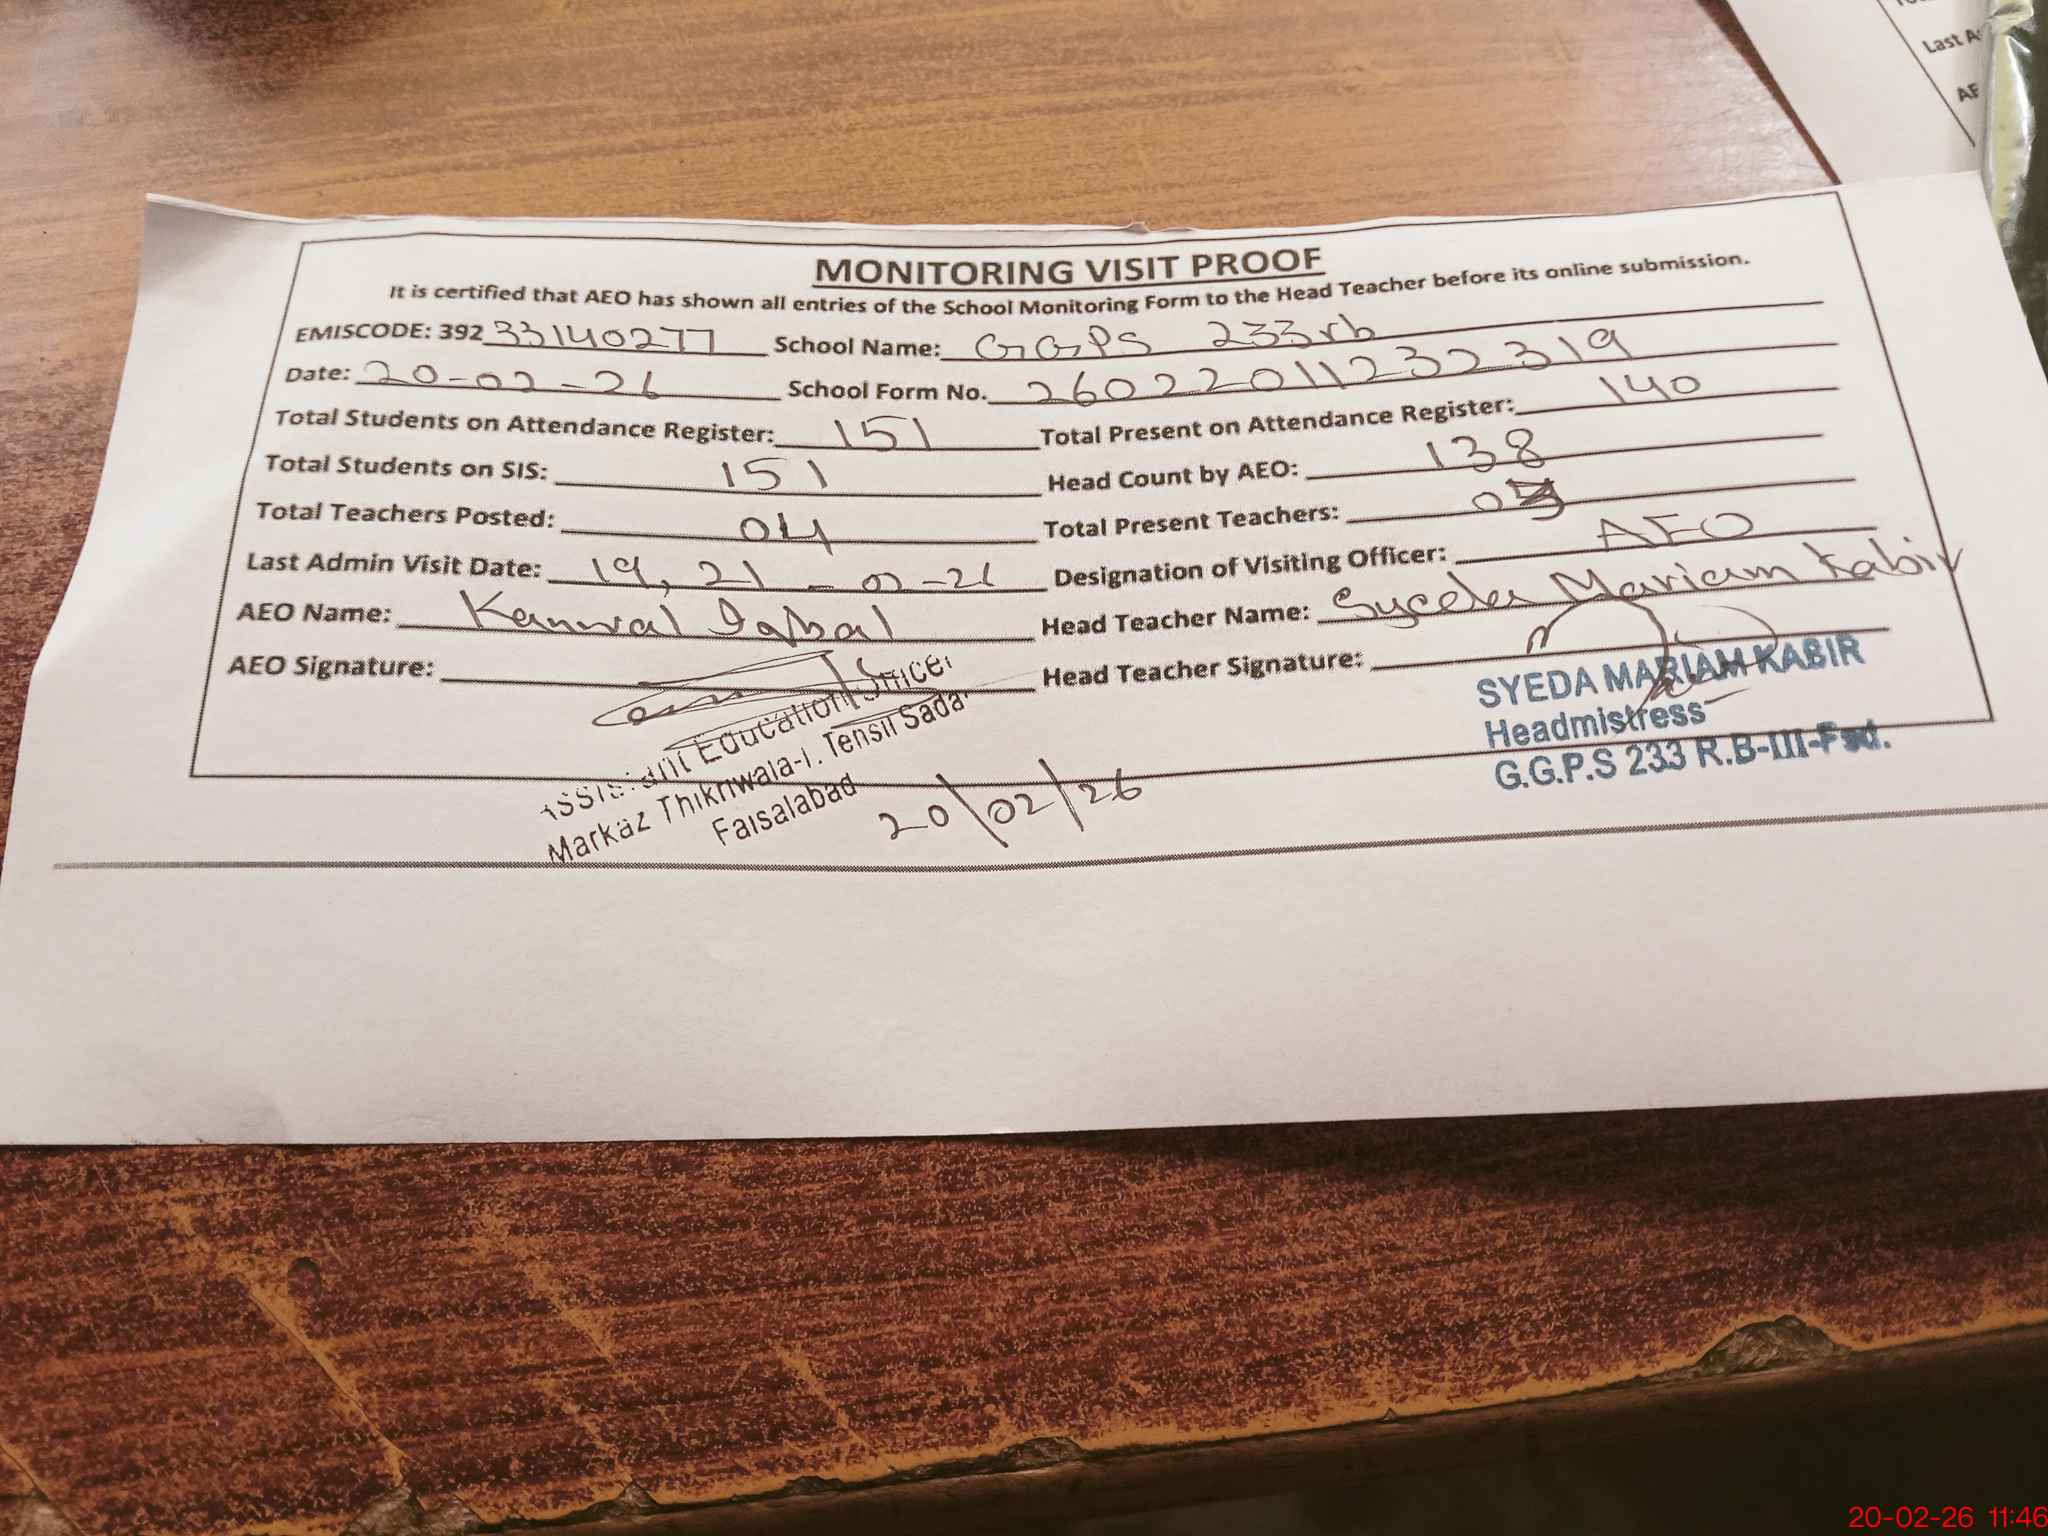 MONITORING VISIT PROOF
It is certified that AEO has shown all entries of the School Monitoring Form to the Head Teacher before its online submission.
EMISCODE: 392 33140277 School Name: GGPS 233rb
Date: 20-02-26 School Form No. 26022011232319
Total Students on Attendance Register: 151 Total Present on Attendance Register: 140
Total Students on SIS: 151 Head Count by AEO: 138
Total Teachers Posted: 04 Total Present Teachers:
Last Admin Visit Date: 19, 21 - 02-26 Designation of Visiting Officer: AEO
AEO Name: Kanwal Iqbal Head Teacher Name: Syeda Mariam Kabir
AEO Signature: Head Teacher Signature:
Education Officer
Markaz Thikriwala-I, Tehsil Sadar
Faisalabad
20/02/26
SYEDA MARIAM KABIR
Headmistress
G.G.P.S 233 R.B-III-Fsd.
Last A
AE
20-02-26 11:46